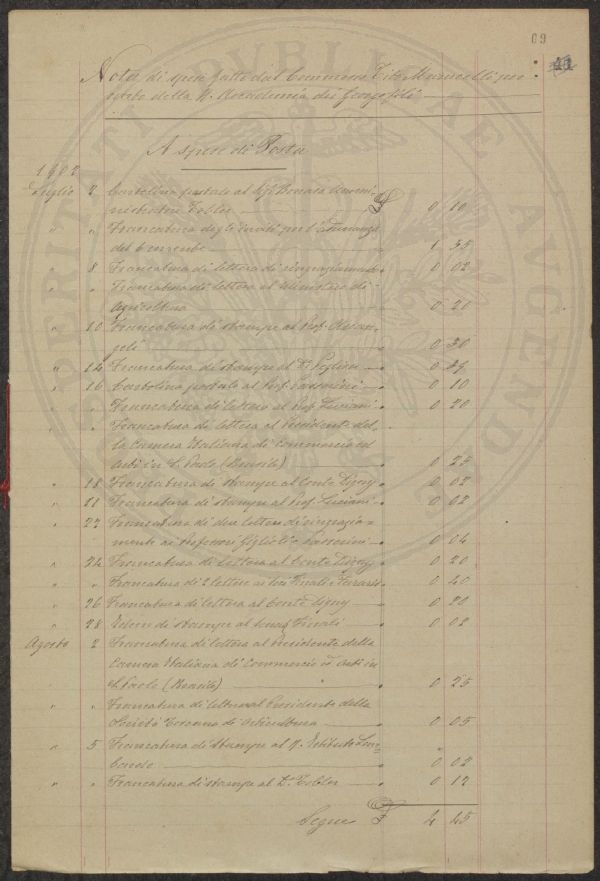 69
Nota di spese fatte dal Commesso Tito Marucelli per
conto della R. Accademia dei Georgofili
A spese di Posta
1902
Luglio 2 Cartolina postale al Sig. Donato Ammi-
nistratore Tobler £ 0 10
" " Francatura degli inviti per l'Adunanza
del 6 corrente 1 35
" 8 Francatura di lettera di ringraziamento 0 02
" " Francatura di lettera al Ministero di
Agricoltura 0 20
" 10 Francatura di stampe al Prof.
0 30
" 14 Francatura di stampe al Dr. 0
" 16 Cartolina postale al Prof. Passerini 0 10
" " Francatura di lettera al Prof. Luciani 0 20
" " Francatura di lettera al Presidente del
la Camera Italiana di Commercio ed
Arti in S. Paolo (Brasile) 0 25
" 18 Francatura di stampe al Conte Digny 0 02
" 21 Francatura di stampe al Prof. Luciani 0 02
" 22 Francatura di due lettere di ringrazia=
mento ai Professori Giglioli e Passerini 0 04
" 24 Francatura di lettera al Conte Digny 0 20
" " Francatura di 2 lettere ai Soci Finali e Ferraris 0 40
" 26 Francatura di lettera al Conte Digny 0 20
" 28 Idem di stampe al Finali 0 02
Agosto 2 Francatura di lettera al Presidente della
Camera Italiana di Commercio ed Arti in
S. Paolo (Brasile) 0 25
" " Francatura di lettera al Presidente della
Società Toscana di Orticultura 0 05
" 5 Francatura di stampe al R. Istituto Lom
bardo 0 02
" " Francatura di stampe al Dr. Tobler 0 12
Segue £ 4 45
PROSPERITATI PVBLICAE AVGENDAE